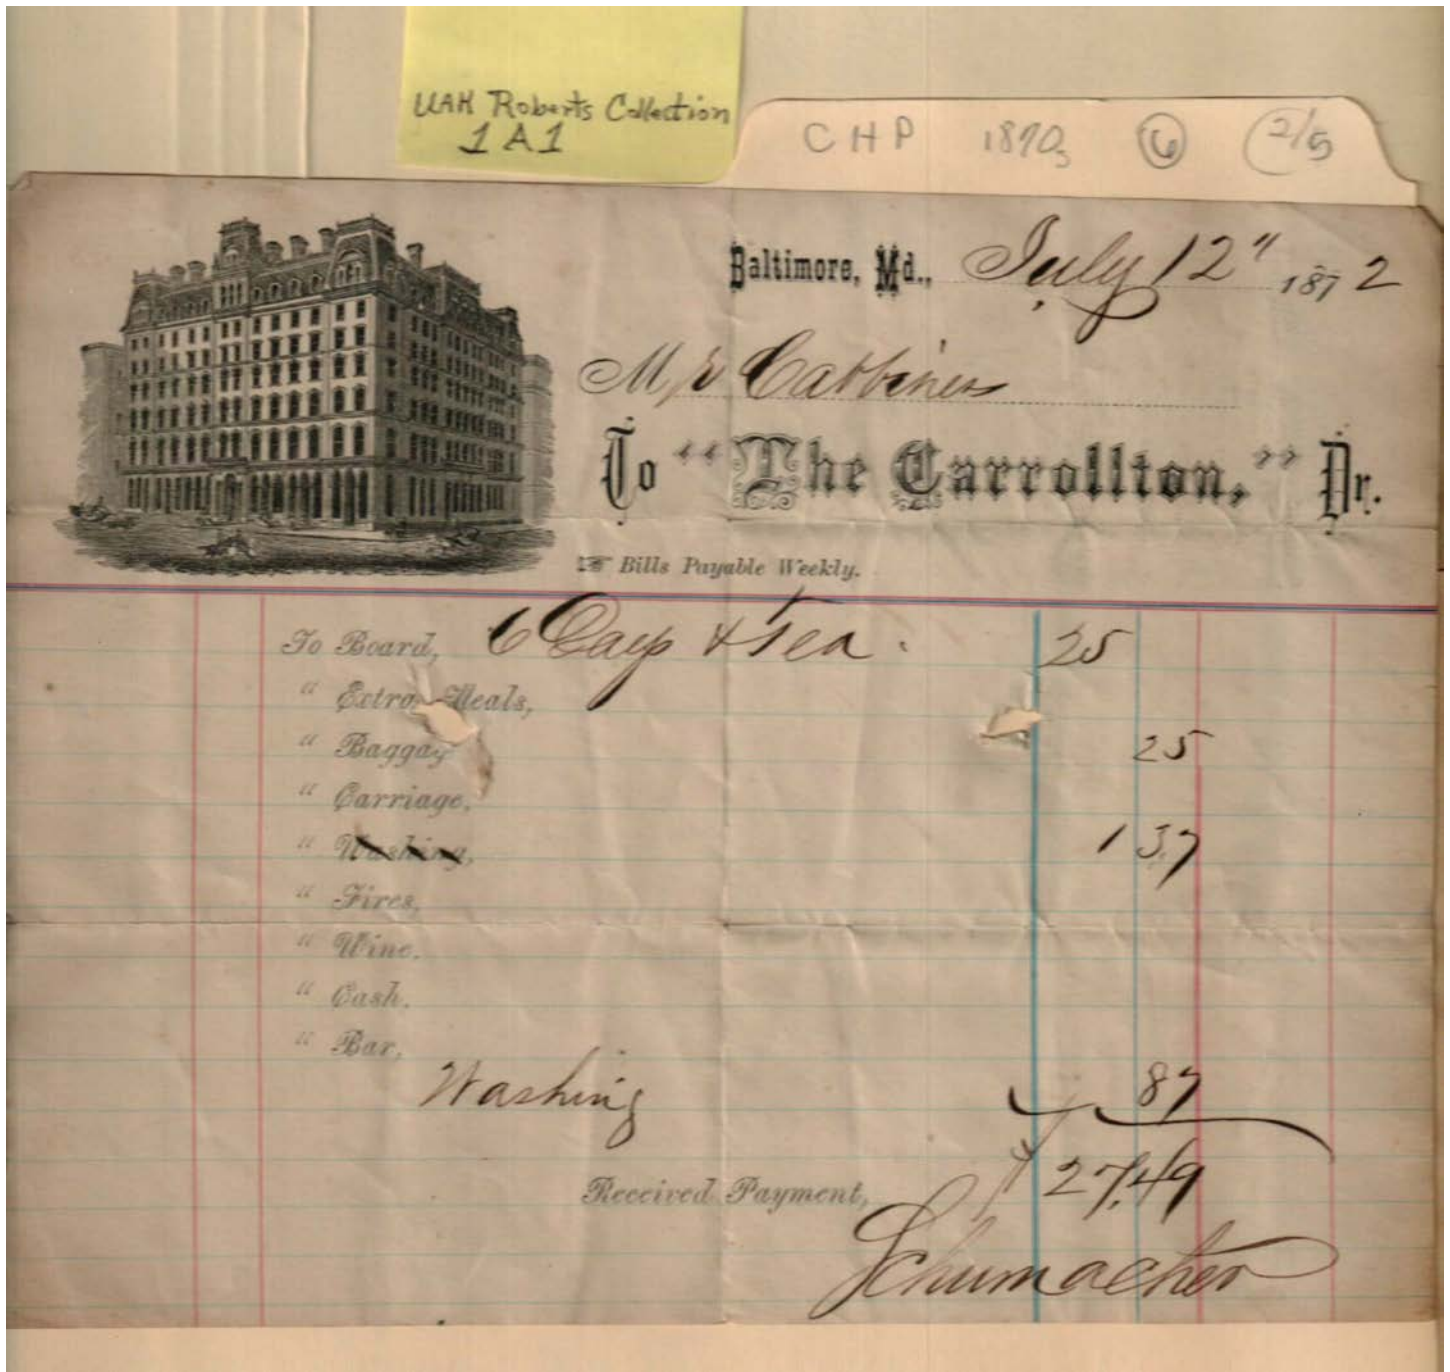 UAH Roberts Collection
1A1
CHP 1870s 6 2/5
Baltimore, Md., July 12" 1872
Mr
To "The Carrollton," Dr.
Bills Payable Weekly.
To Board, 6 Days & Tea. 25
" Extra Meals,
" Baggag 25
" Carriage,
" Washing, 1 37
" Fires,
" Wine.
" Cash.
" Bar.
Washing 87
Received Payment, $27.49
Schumacher